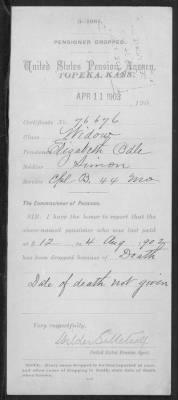 3-1081.
PENSIONER DROPPED.
United States Pension Agency,
TOPEKA, KANS.
APR 11 1903
190
Certificate No. 76676
Class Widow
Pensioner Elizabeth Odle
Soldier Simon
Service Cpl B. 44 Mo
The Commissioner of Pensions.
SIR: I have the honor to report that the
above-named pensioner who was last paid
at $ 12, to 4 Aug, 1902
has been dropped because of Death
Date of death not given
Very respectfully,
United States Pension Agent.
NOTE.—Every name dropped to be thus reported at once,
and when cause of dropping is death, state date of death
when known.